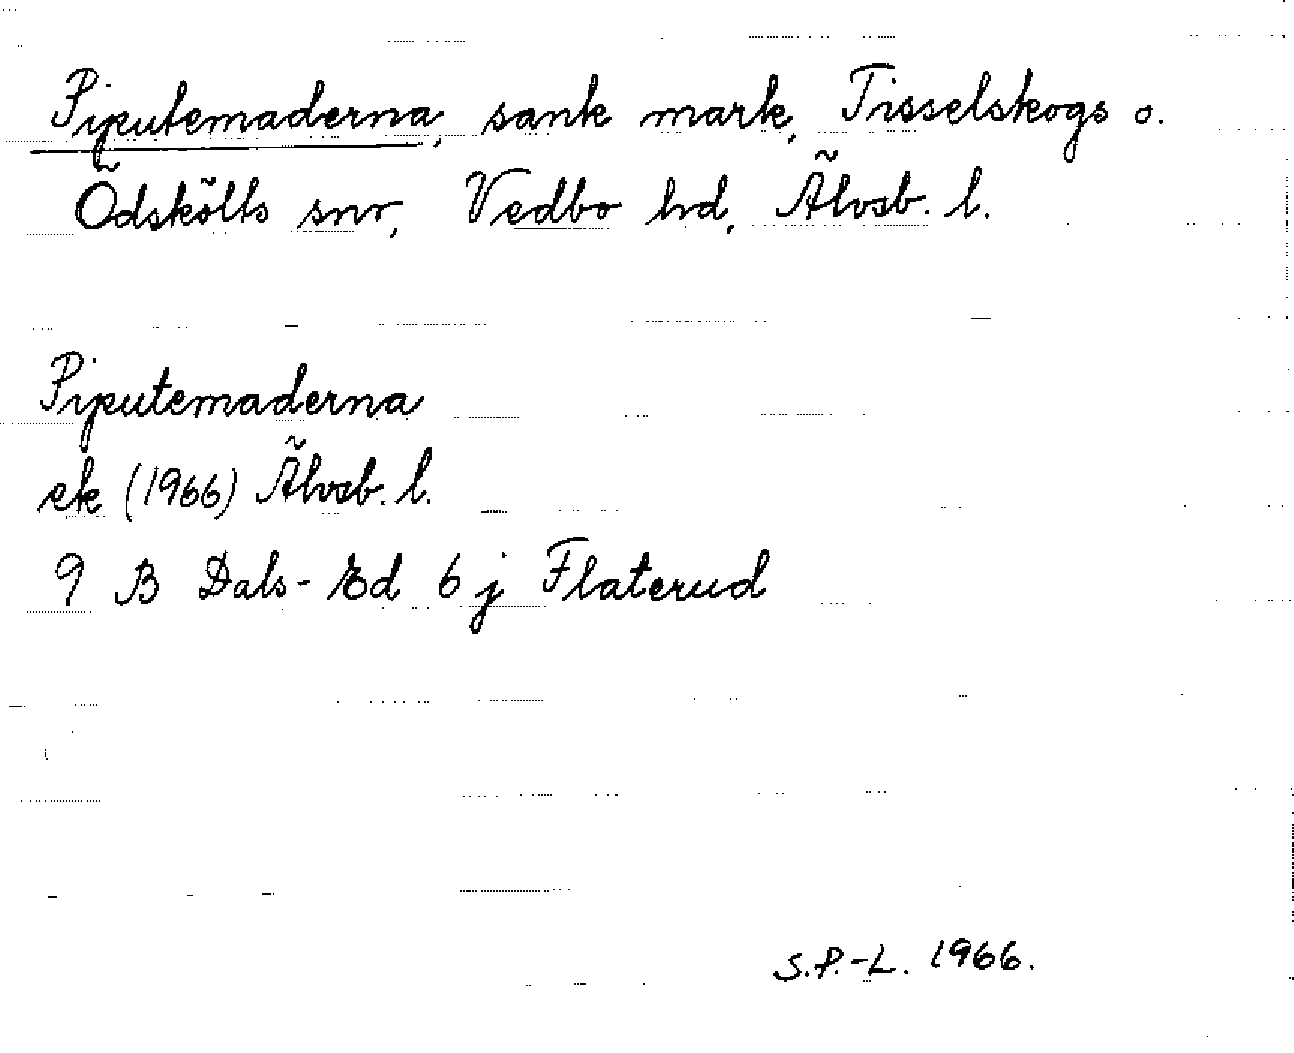 Piputemaderna, sank mark, Tisselskogs o.
Ödskölts snr, Vedbo hd, Älvsb. l.
Piputemaderna
ek (1966) Älvsb. l.
9 B Dals-Ed 6 j Flaterud
S.P.-L. 1966.